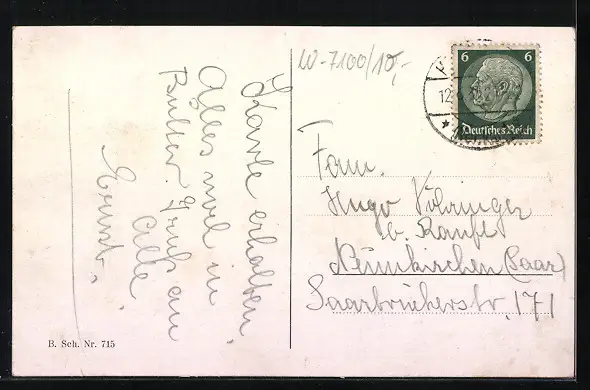 Karte erhalten,
Alles mol in
Butter. Gruß an
Alle
Ernst.
W-7100/10,-
6 6
Deutsches Reich
12
Fam.
Hugo Vöhringer
b. Ranft
Neunkirchen (Saar)
Saarbrückerstr. 171
B. Sch. Nr. 715